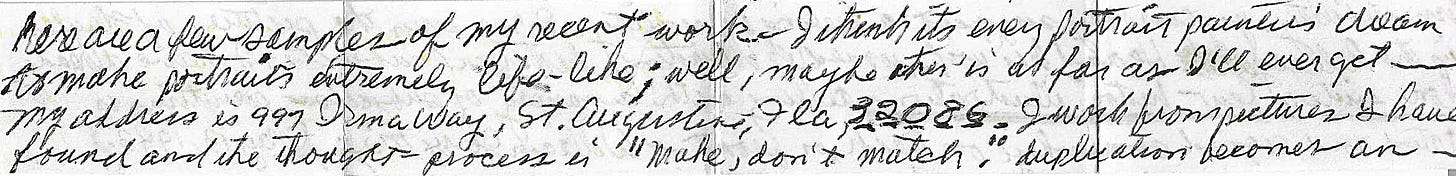 Here are a few samples of my recent work - I think its every portrait painter's dream
to make portraits extremely life-like; well, maybe this is as far as I'll ever get —
my address is 997 Irma Way, St. Augustine, Fla, 32086. I work from pictures I have
found and the thought process is "make, don't match." duplication becomes an -